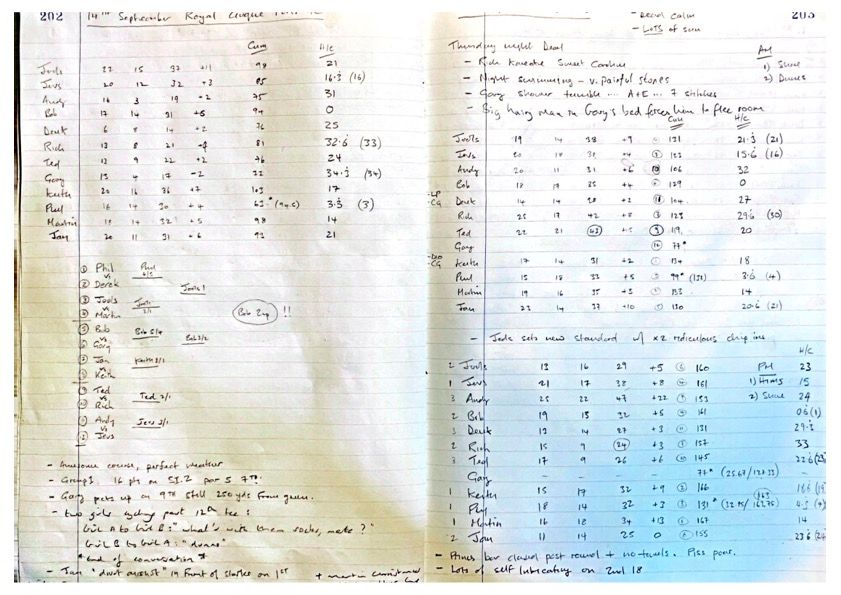 202
14TH September Royal
Cum H/c
Jools 22 15 37 +11 98 21
Jevs 20 12 32 +3 85 16.3 (16)
Andy 16 3 19 -2 75 31
Bob 17 14 31 +5 94 0
Derek 6 8 14 -2 76 25
Rich 13 8 21 81 32.6 (33)
Ted 13 9 22 +2 76 24
Gary 13 4 17 -2 34.3 (34)
Keith 20 16 36 +7 103 17
Phil 16 14 30 +4 63* (94.5) 3.3 (3)
Martin 14 32 +5 98 14
Jan 20 11 31 +6 92 21
1 Phil
vs
2 Derek
Phil
6/5
3 Jools
vs
4 Martin
Jools
2/1
Jools 1
5 Bob
vs
6 Gary
Bob 5/4
Bob 3/2
Bob 2up !!
7 Jan
vs
8 Keith
Keith 2/1
9 Ted
vs
10 Rich
Ted 2/1
11 Andy
vs
12 Jevs
Jevs 2/1
- Awesome course, perfect weather
- Group 1. 16 pts on S1.2 par 5 7TH.
- Gary picks up on 9TH still 250 yds from green.
- two girls cycling past 12th tee:
Girl A to Girl B: "what's with them socks, mate?"
Girl B to Girl A: "dunno"
* End of conversation *
- Jan "divot assist" in front of on 1ST
203
- Dead calm
- LOTS of sun
Thursday night Deal
- Rich Karaoke Sweet Caroline
- Night swimming - v. painful stones
- Gary shower tumble ... A+E ... 7 stitches
- Big hairy man in Gary's bed forces him to flee room
AM
1)
2) Dunes
Cum H/c
Jools 19 14 38 +9 131 21.3 (21)
Jevs 20 18 15.6 (16)
Andy 20 11 31 +6 106 32
Bob 18 17 35 +4 129 0
Derek 14 14 28 +2 104 27
Rich 25 17 42 +8 123 29.6 (30)
Ted 22 21 43 119 20
Gary 77*
Keith 17 14 31 +2 134 18
Phil 15 18 33 +5 99* 3.6 (4)
Martin 19 16 35 +3 133 14
Jan 23 14 37 +10 130 20.6 (21)
- LP
- CG
- CG
- Jools sets new standard w/ x2 ridiculous chip ins
H/C
2 Jools 13 16 29 +5 160 23
1 Jevs 21 17 38 +8 161 15
3 Andy 25 22 47 +22 153 24
2 Bob 19 13 32 +5 161 0.6 (1)
3 Derek 13 14 27 +3 131 29.3
2 Rich 15 9 24 +3 157 33
3 Ted 17 9 26 +6 145 22.6 (23)
Gary - - - 77* (25.67/127.33) -
1 Keith 15 17 32 +9 166
1 Phil 18 14 32 +3 131* 4.3 (4)
1 Martin 16 18 34 +13 167 14
2 Jan 11 14 25 0 155 23.6 (24)
PM
1)
2)
- Princes bar closed post round + no towels. Piss poor.
- Lots of self lubricating on 2nd 18